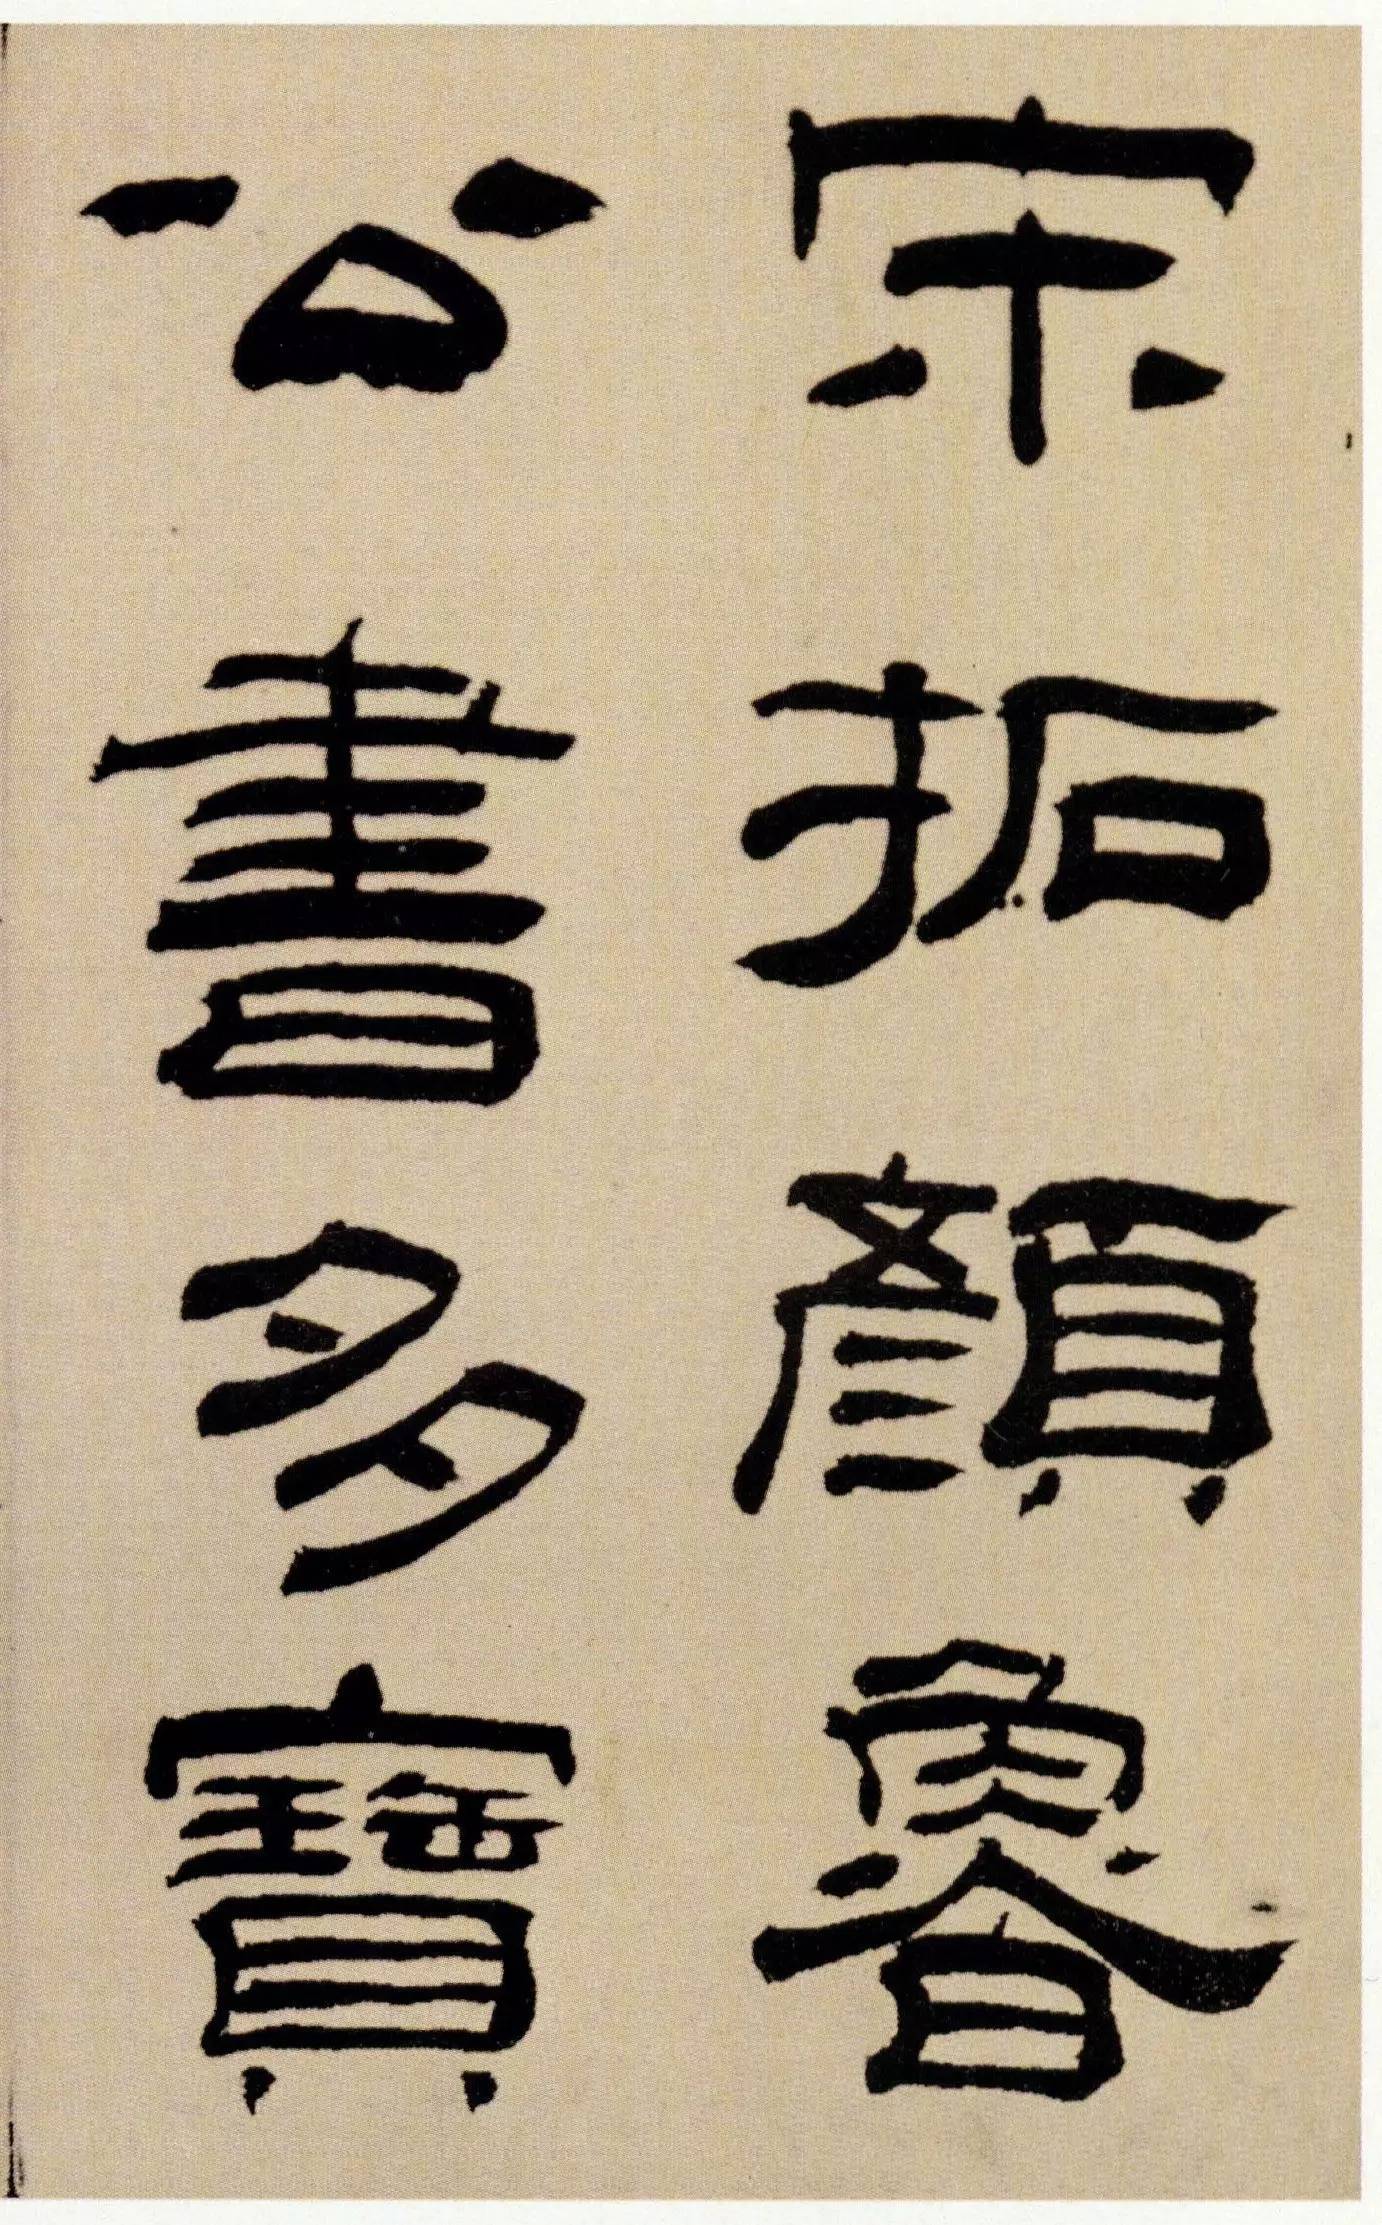 宋拓顏魯
公書多寶